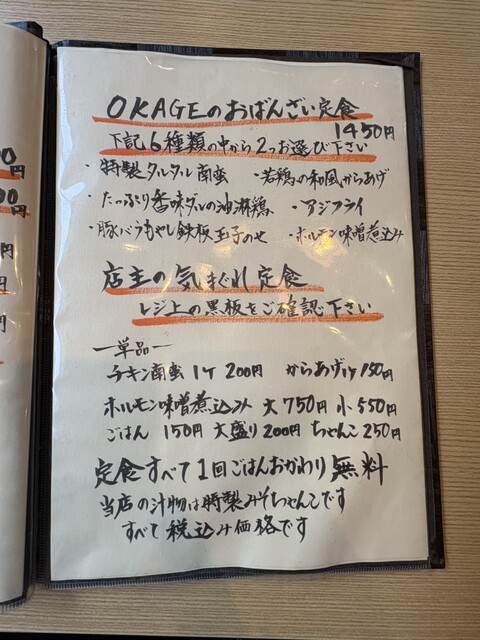 OKAGEのおばんざい定食
1450円
下記6種類の中から2つお選び下さい
・特製タルタル南蛮 ・若鶏の和風からあげ
・たっぷり香味ダレの油淋鶏 ・アジフライ
・豚バラもやし鉄板玉子のせ ・ホルモン味噌煮込み
店主の気まぐれ定食
レジ上の黒板をご確認下さい
ー単品ー
チキン南蛮 1ケ 200円 からあげ1ケ 150円
ホルモン味噌煮込み 大750円 小550円
ごはん 150円 大盛り200円 ちゃんこ250円
定食すべて1回ごはんおかわり無料
当店の汁物は特製みそちゃんこです
すべて税込み価格です
0円
00円
円
円
円